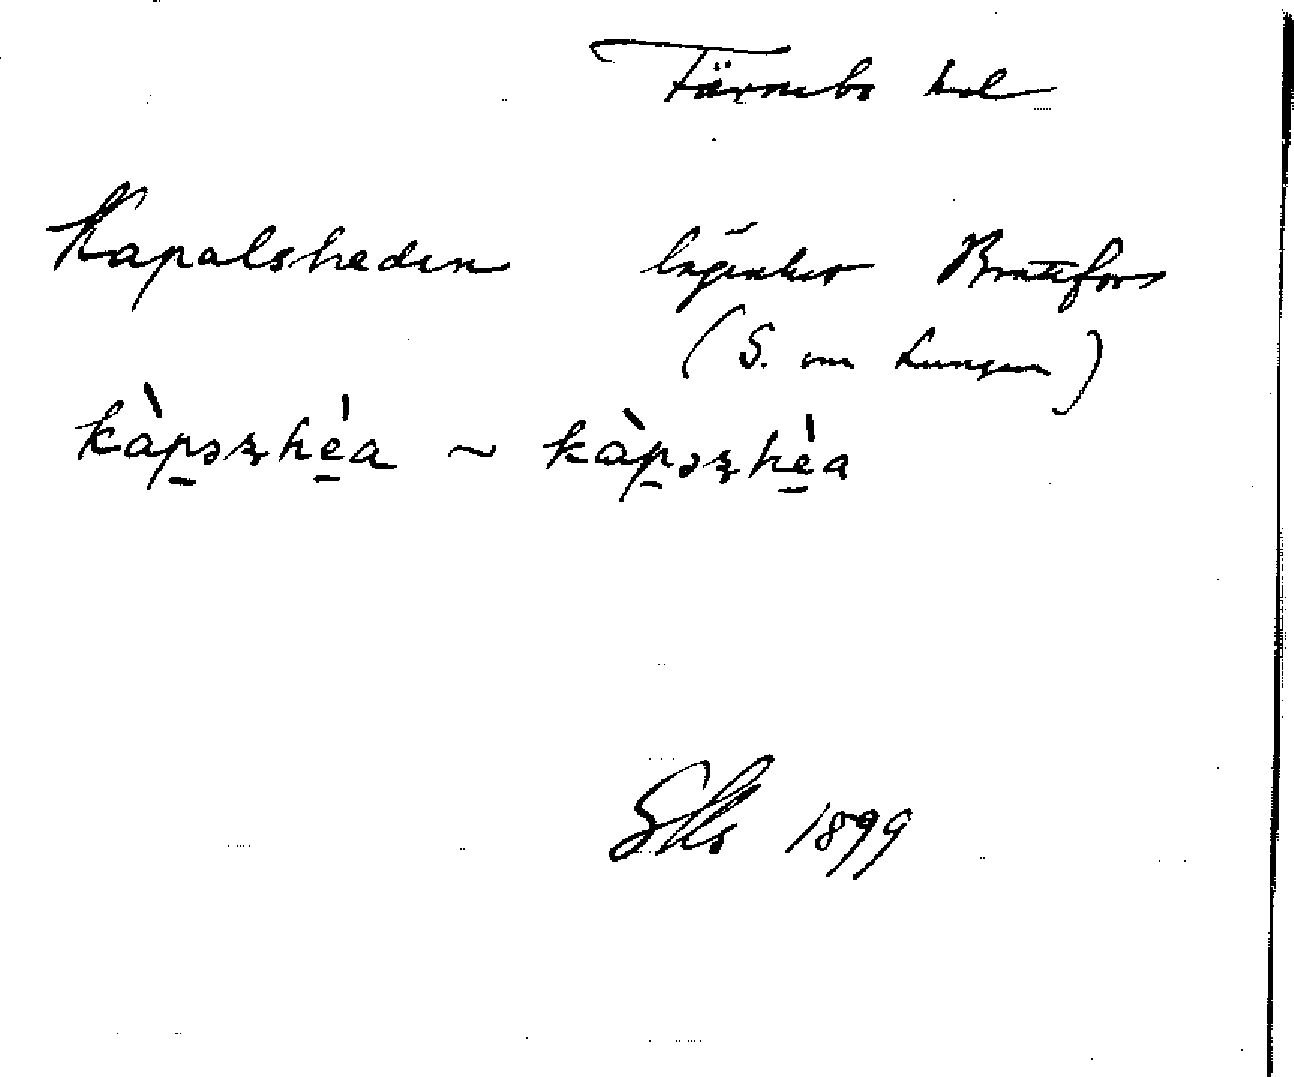 Färnebo hd
Kapalsheden lägenhet Brattfors
(S. om Lungen)
kàp̱əʂhé̱a ~ kàp̱əʂhé̱a
1899